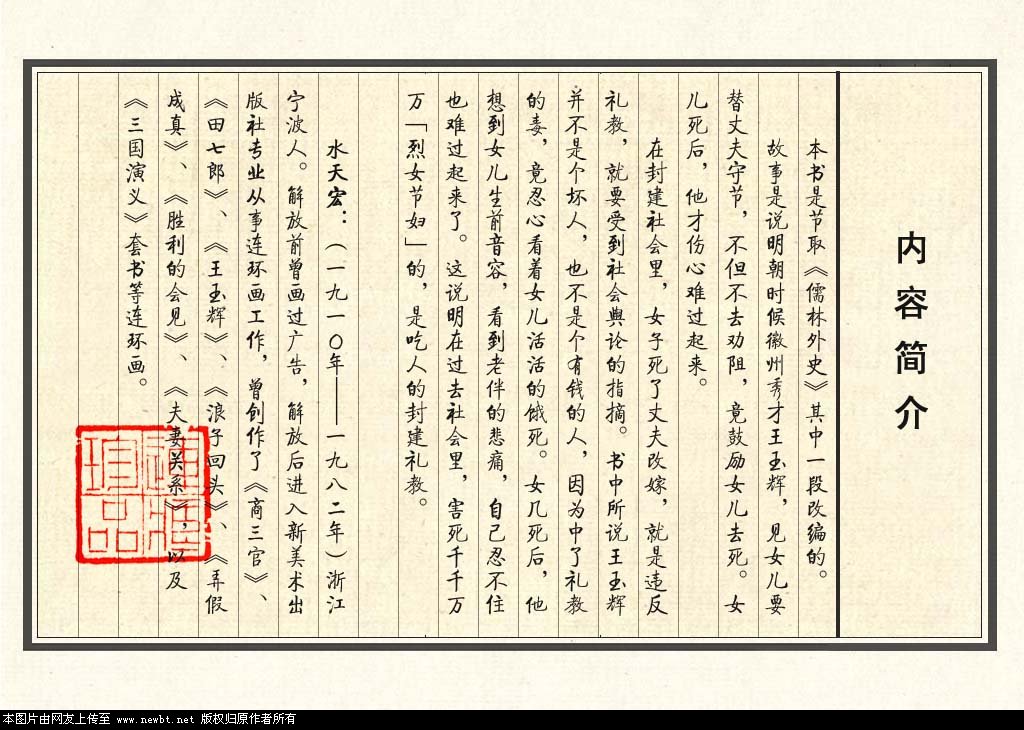 内容简介
本书是节取《儒林外史》其中一段改编的。
故事是说明朝时候徽州秀才王玉辉，见女儿要
替丈夫守节，不但不去劝阻，竟鼓励女儿去死。女
儿死后，他才伤心难过起来。
在封建社会里，女子死了丈夫改嫁，就是违反
礼教，就要受到社会舆论的指摘。书中所说王玉辉
并不是个坏人，也不是个有钱的人，因为中了礼教
的毒，竟忍心看着女儿活活的饿死。女几死后，他
想到女儿生前音容，看到老伴的悲痛，自己忍不住
也难过起来了。这说明在过去社会里，害死千千万
万「烈女节妇」的，是吃人的封建礼教。
水天宏：（一九一〇年——一九八二年）浙江
宁波人。解放前曾画过广告，解放后进入新美术出
版社专业从事连环画工作，曾创作了《商三官》、
《田七郎》、《王玉辉》、《浪子回头》、《弄假
成真》、《胜利的会见》、《夫妻关系》，以及
《三国演义》套书等连环画。
本图片由网友上传至 www.newbt.net 版权归原作者所有